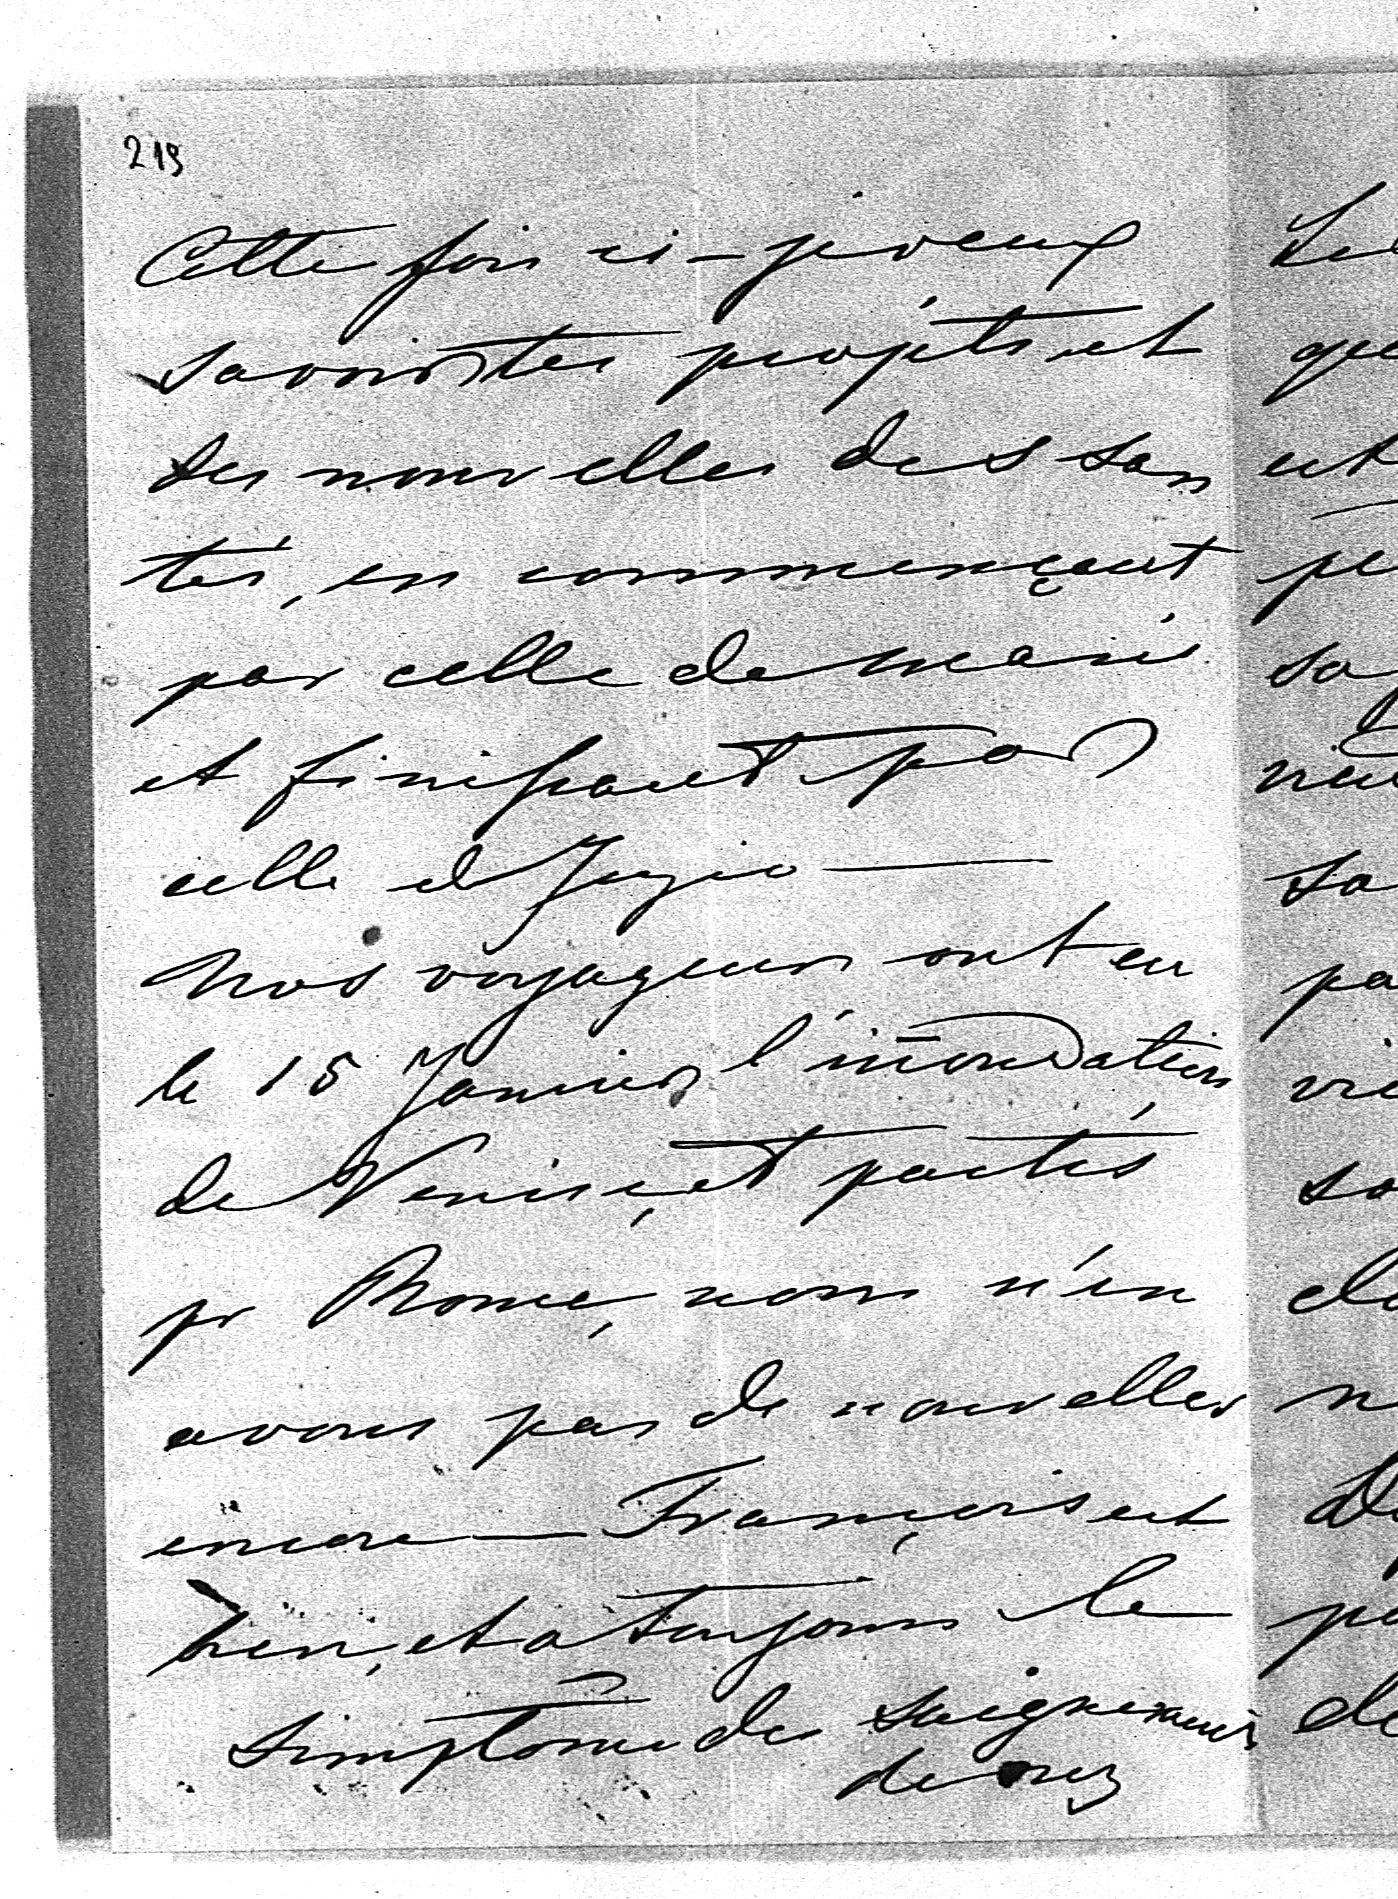 219
Cette fois ci - je veux
savoir tes projets et
des nouvelles des san
tés, en commençant
par celle de Marie
et finissant par
celle de
Nos voyageurs ont eu
le 15 Janvier l'inondation
de Venise, et partis
pr Rome, nous n'en
avons pas de nouvelles
encore — François est
bien, et a toujours le
simptôme des saignemens
de nez